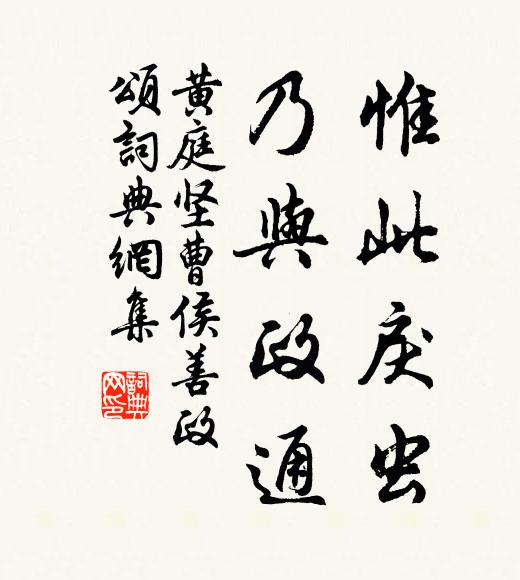 惟此戾虫
乃與政通
黃庭坚曹侯善政
頌詞典網集
詞典
网印